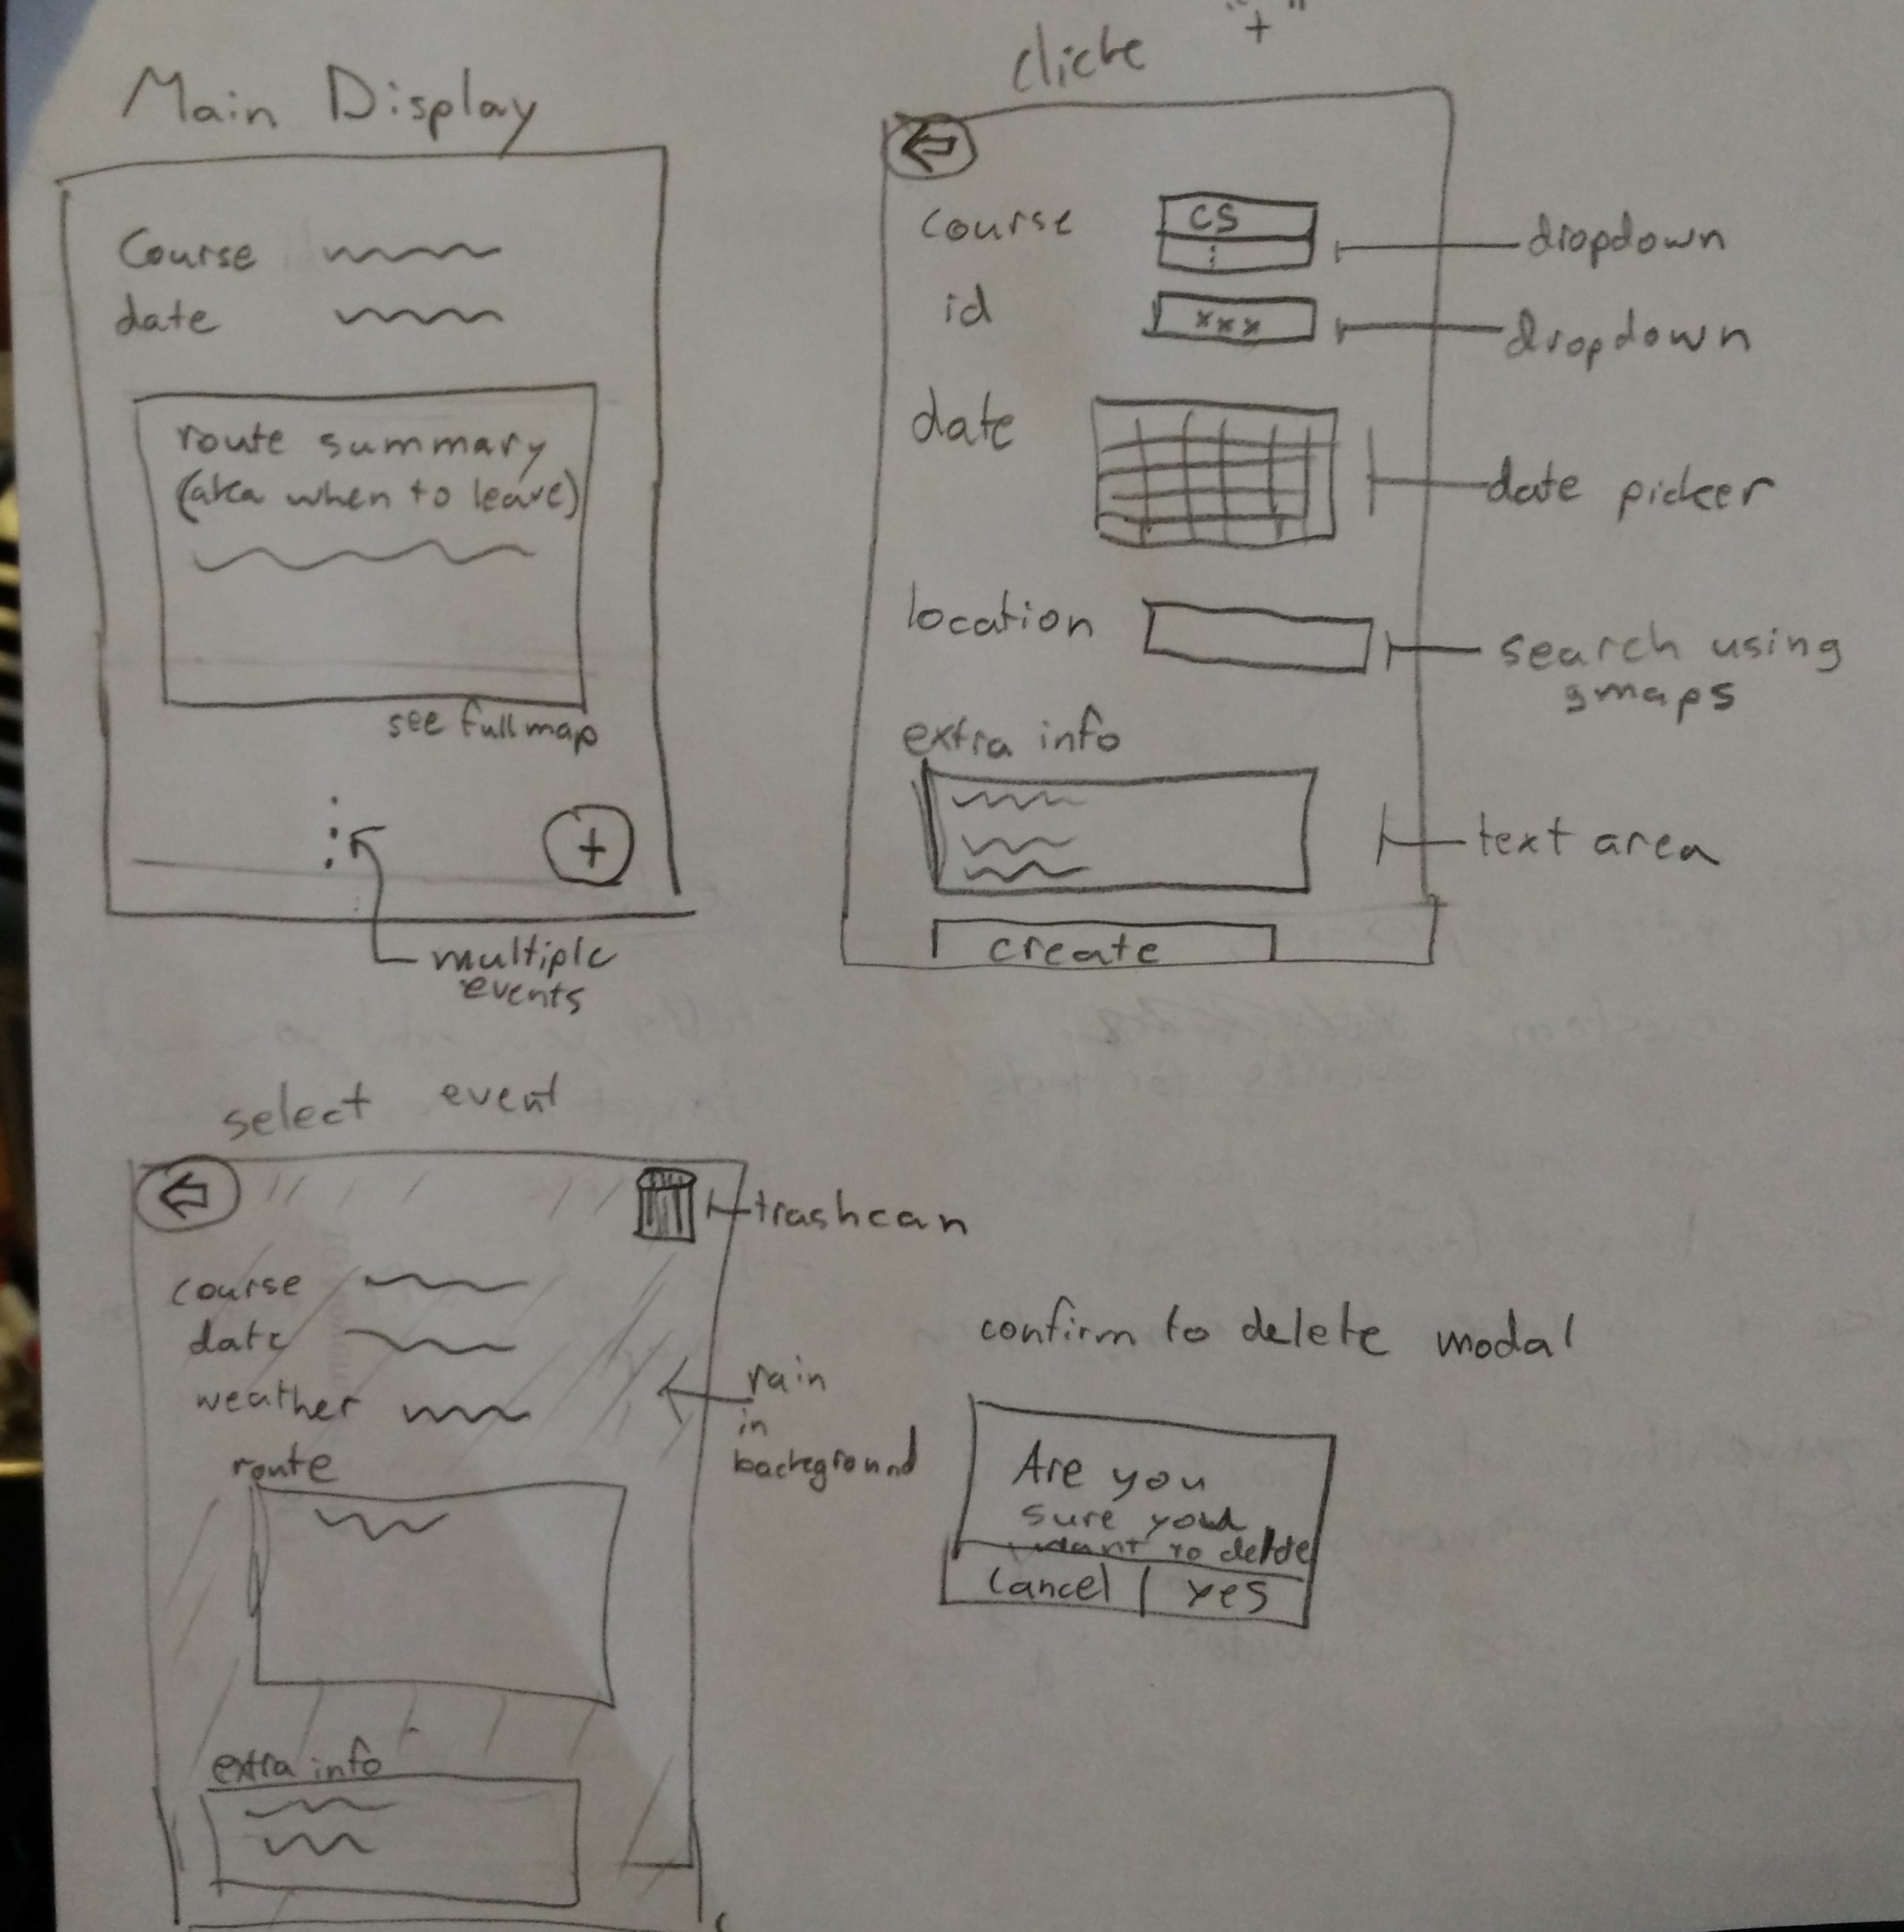 Main Display
Course
date
route summary
(aka when to leave)
see full map
+
multiple
events
click "+"
course
CS
dropdown
id
xxx
dropdown
date
date picker
location
search using
gmaps
extra info
text area
create
select event
trashcan
course
date
weather
rain
in
background
route
extra info
confirm to delete modal
Are you
sure you
want to delete
Cancel
yes